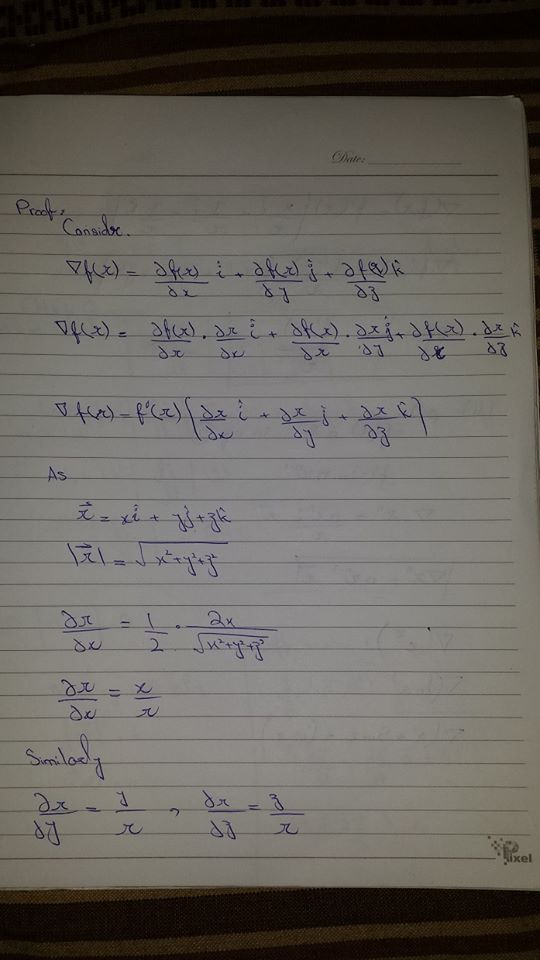 Date:
Proof:
Consider.
∇f(r) = ∂f(r)/∂x î + ∂f(r)/∂y ĵ + ∂f(r)/∂z k̂
∇f(r) = ∂f(r)/∂r · ∂r/∂x î + ∂f(r)/∂r · ∂r/∂y ĵ + ∂f(r)/∂r · ∂r/∂z k̂
∇f(r) = f'(r) { ∂r/∂x î + ∂r/∂y ĵ + ∂r/∂z k̂ }
As
r⃗ = xî + yĵ + zk̂
|r⃗| = √(x² + y² + z²)
∂r/∂x = 1/2 · 2x/√(x² + y² + z²)
∂r/∂x = x/r
Similarly
∂r/∂y = y/r , ∂r/∂z = z/r
Pixel